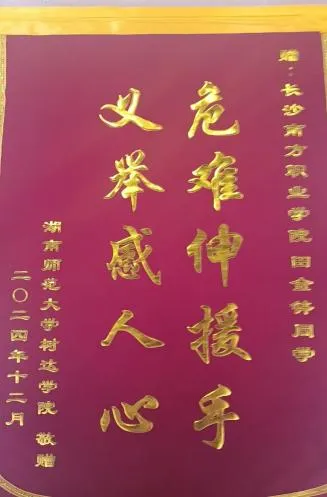 赠：长沙南方职业学院 田金 同学
危难伸援手
义举感人心
湖南师范大学树达学院 敬赠
二〇二四年十二月